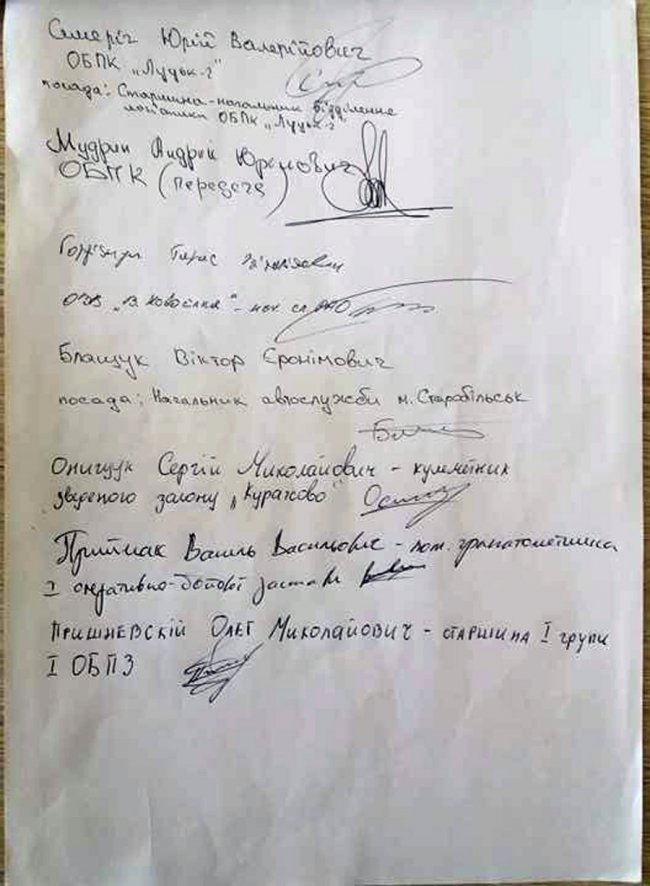 Симеріг Юрій Валерійович
ОБПК „Луцьк-2"
посада: Старшина-начальник відділення
логістики ОБПК „Луцьк-2"
Мудрик Андрій Юрійович
ОБПК (Передсга)
Тарас
„В. Новосілка"
Блащук Віктор Єронімович
посада: Начальник автослужби м. Старобільськ
Онищук Сергій Миколайович - кулеметник
зведеного загону „Курахово"
Приймак Василь Васильович - пом. гранатометника
I оперативно-бойової застави
Пришневскій Олег Миколайович - старшина I групи
I ОБПЗ